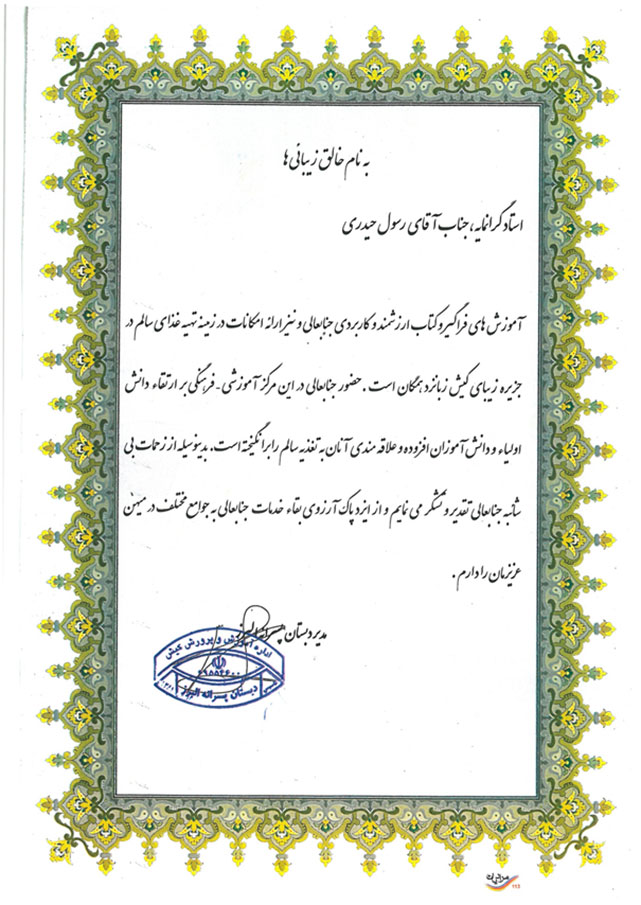 به نام خالق زیبائی ها
استاد گرانمایه، جناب آقای رسول حیدری
آموزش های فراگیر و کتاب ارزشمند و کاربردی جنابعالی و نیز ارائه امکانات در زمینه تهیه غذای سالم در
جزیره زیبای کیش زبانزد همگان است . حضور جنابعالی در این مرکز آموزشی - فرهنگی بر ارتقاء دانش
اولیاء و دانش آموزان افزوده و علاقه مندی آنان به تغذیه سالم را برانگیخته است. بدینوسیله از زحمات بی
شائبه جنابعالی تقدیر و تشکر می نمایم و از ایزد پاک آرزوی بقاء خدمات جنابعالی به جوامع مختلف در میهن
عزیزمان را دارم .
مدیر دبستان پسرانه البرز
اداره آموزش و پرورش کیش
دبستان پسرانه البرز